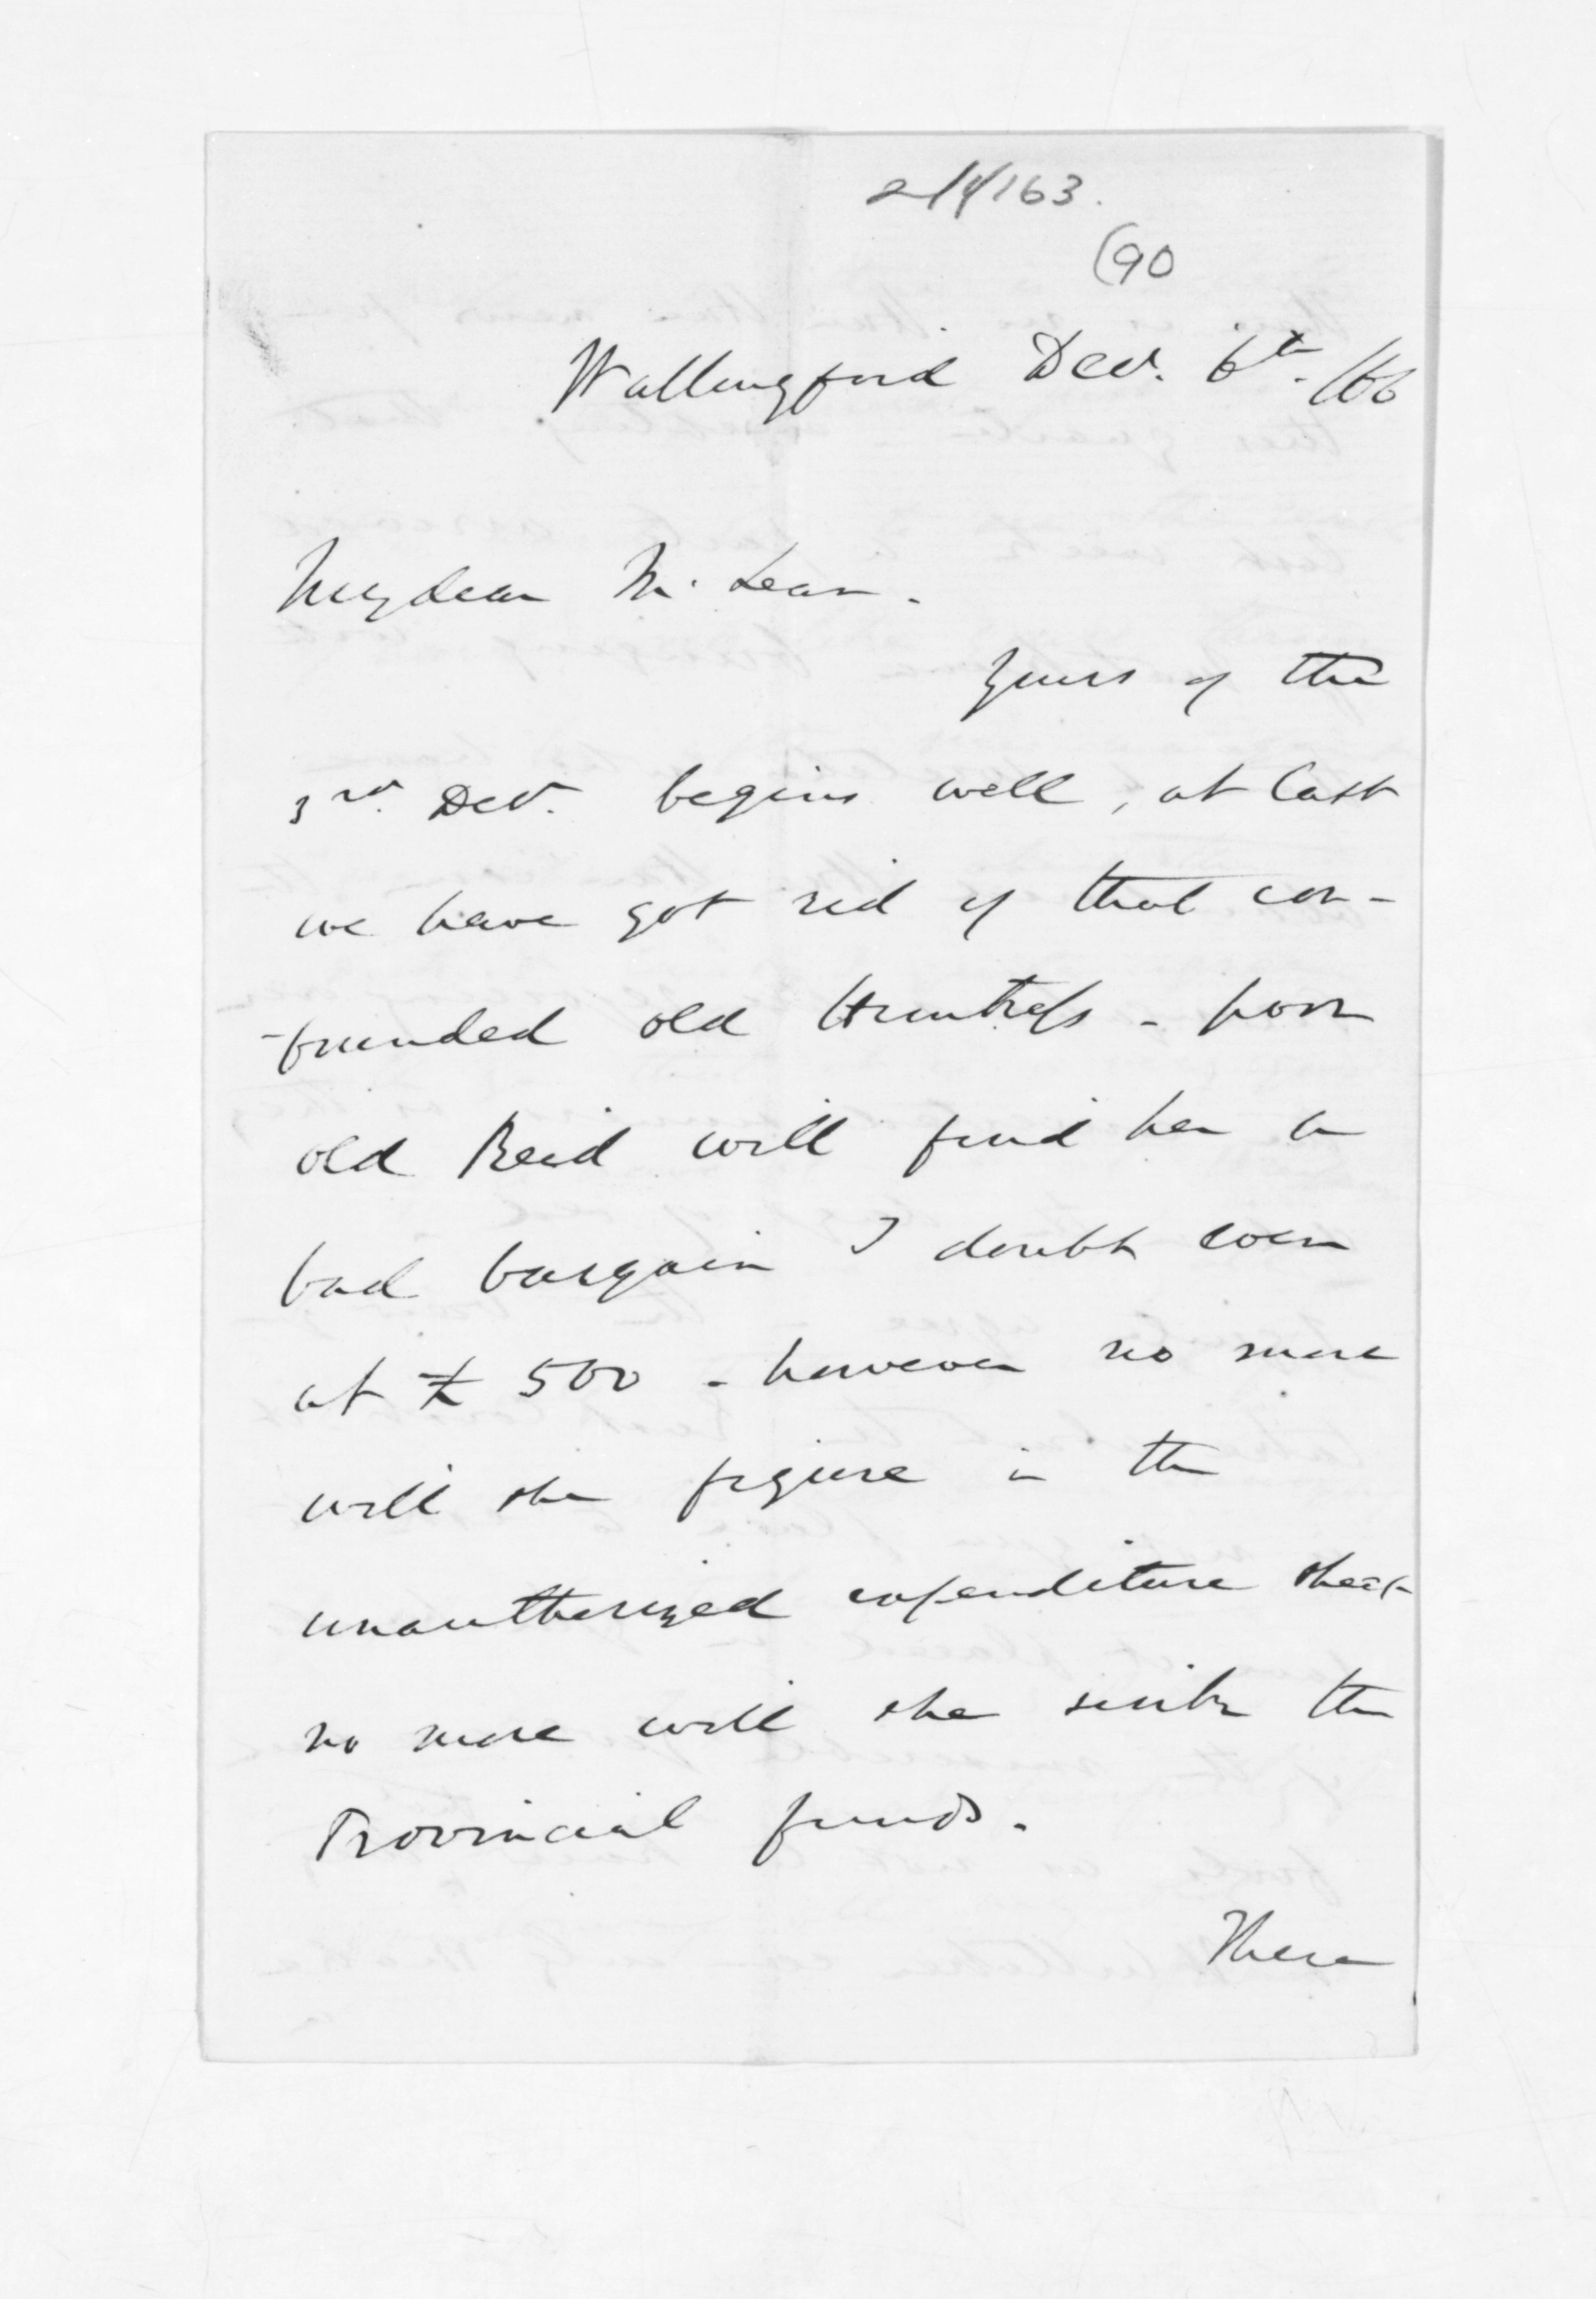 2/4/163.
(90
Wallingford Decr. 6th. /66
My dear McLean.
Yours of the
3rd. Decr. begins well, at last
we have got rid of that con-
-founded old Huntress - poor
old Reid will find her a
bad bargain I doubt even
at £ 500 - however no more
will she figure in the
unauthorized expenditure sheet
no more will she the
Provincial funds.
There